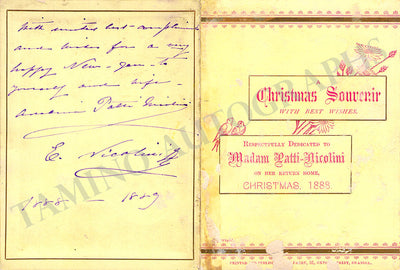 With united best compliments
and wishes for a very
happy New-Year to
yourself and wife
Adelina Patti Nicolini
E. Nicolini
1888 - 1889
Christmas Souvenir
WITH BEST WISHES.
RESPECTFULLY DEDICATED TO
Madam Patti-Nicolini
ON HER RETURN HOME,
CHRISTMAS, 1888.
PRINTED
TAMINO AUTOGRAPHS